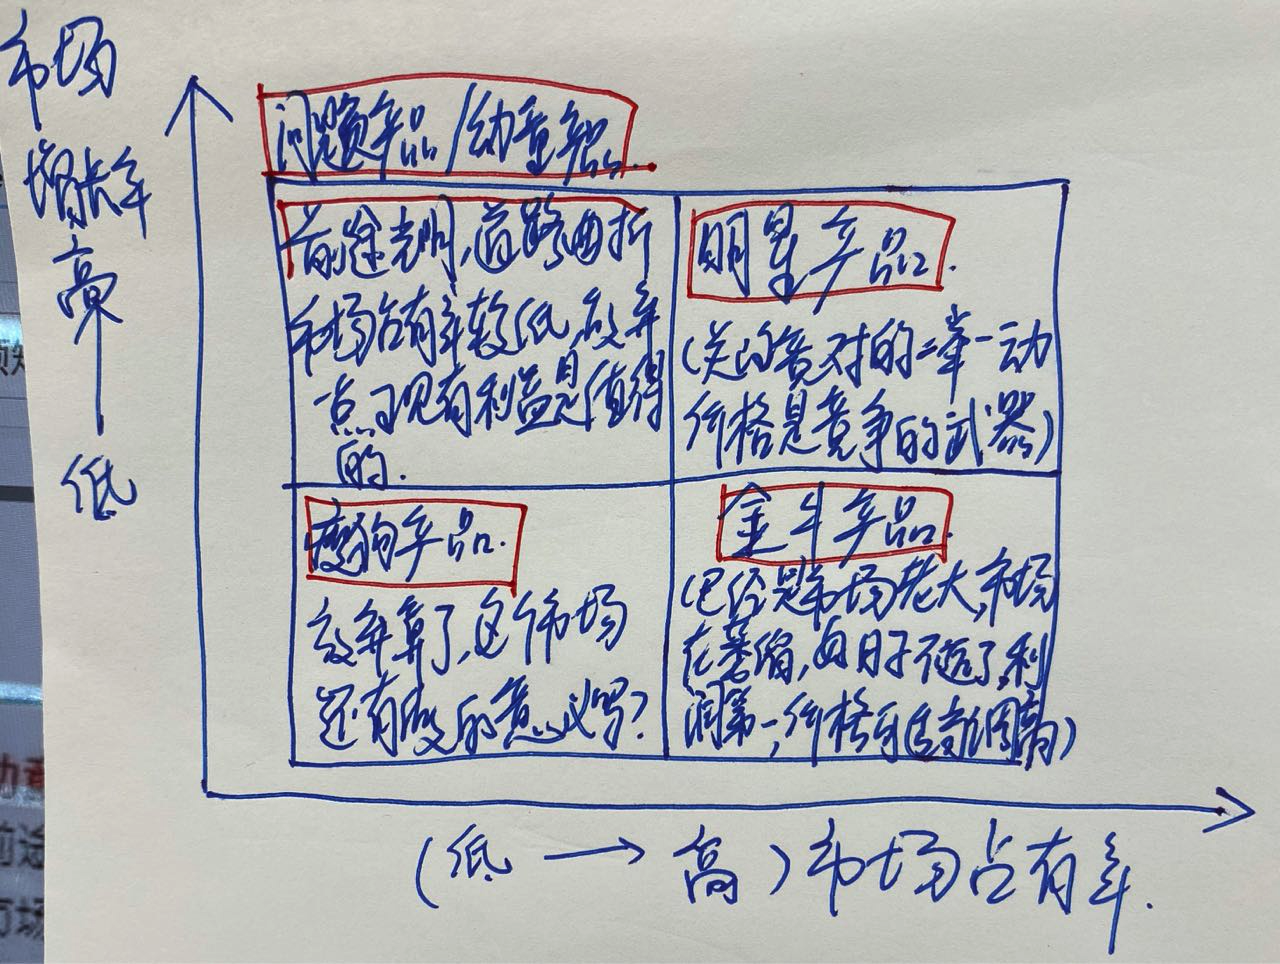 市场
增长率
高
低
问题产品/幼童产品.
前途光明,道路曲折
市场占有率较低,放弃
一点现有利益是值得
的.
明星产品.
(关注竞对的一举一动
价格是竞争的武器)
瘦狗产品.
放弃算了,这个市场
还有废的意义吗?
金牛产品.
(已经是市场老大,市场
在萎缩,好日子不远了,利
润第一,价格可适当调高)
(低 → 高)市场占有率.